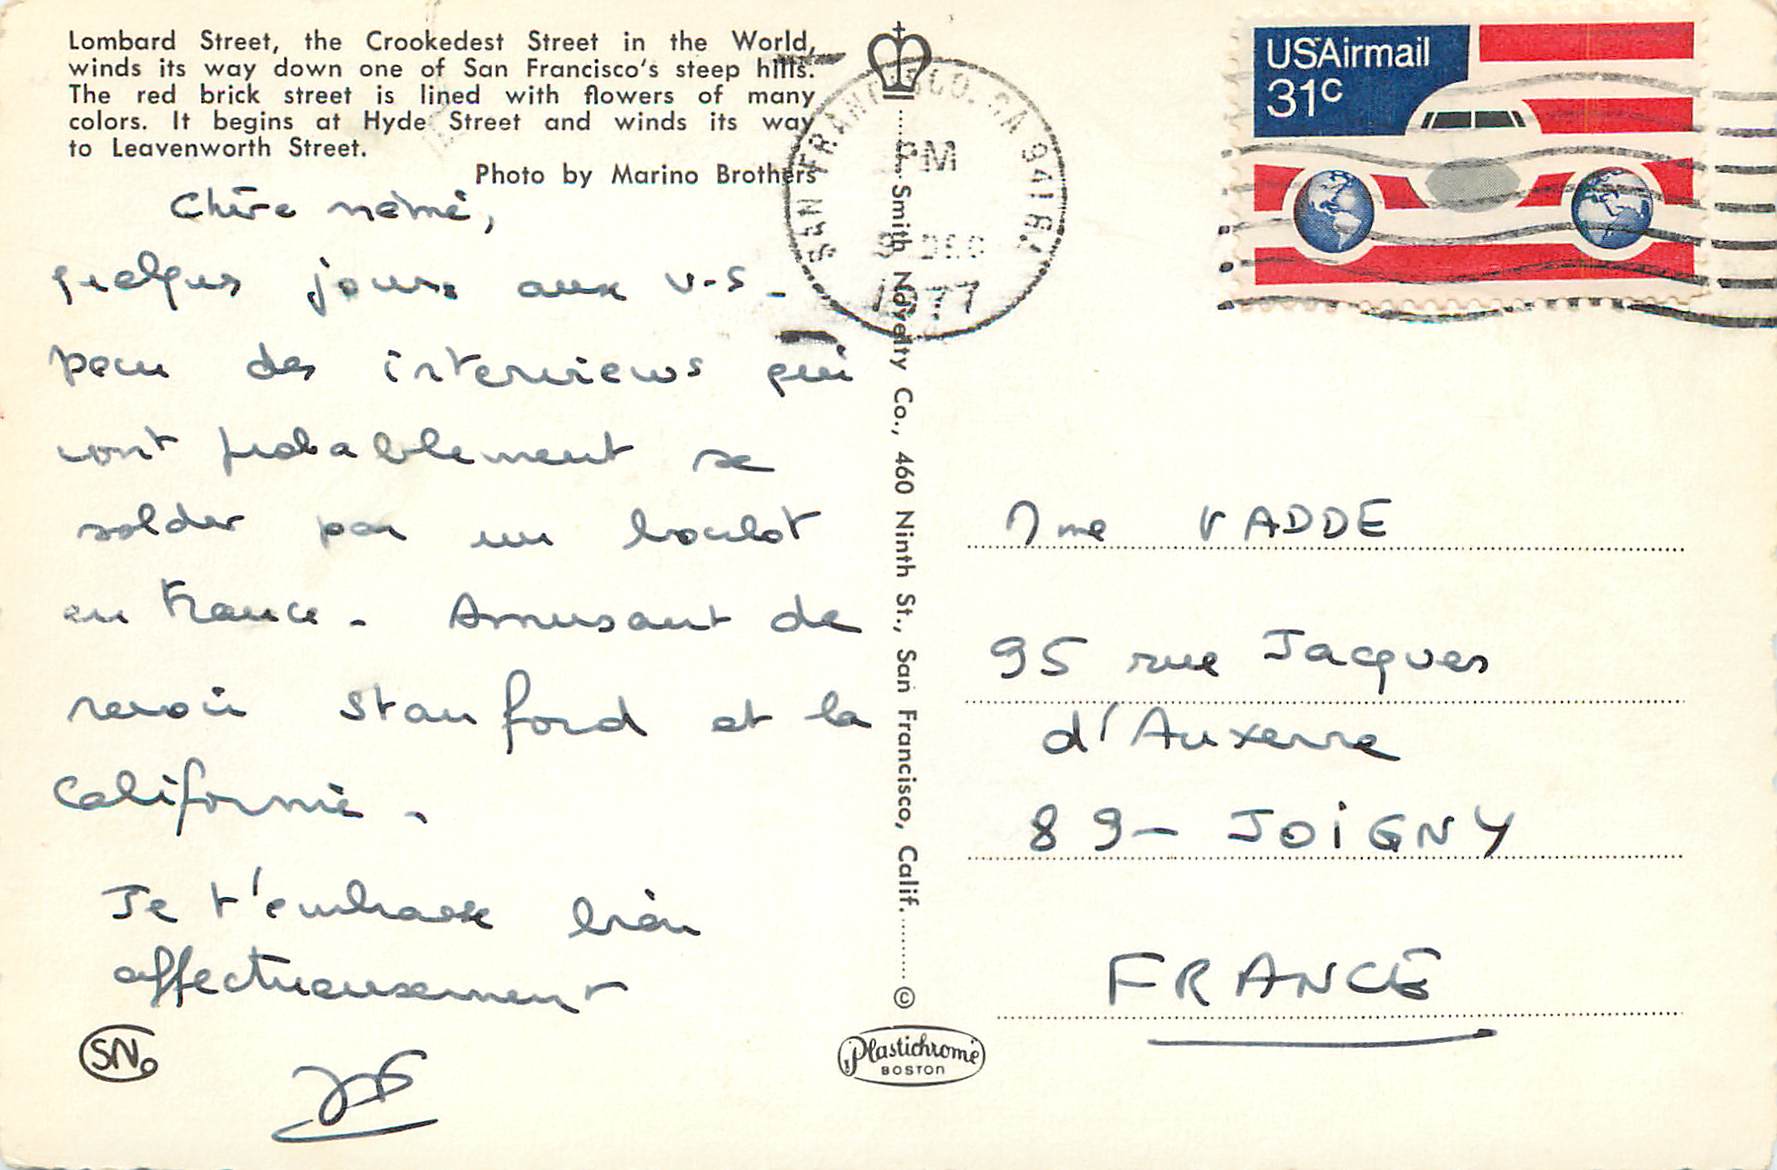 Lombard Street, the Crookedest Street in the World,
winds its way down one of San Francisco's steep hills.
The red brick street is lined with flowers of many
colors. It begins at Hyde Street and winds its way
to Leavenworth Street.
Photo by Marino Brothers
Chère mémé,
quelques jours aux U-S -
pour des interviews qui
vont probablement se
solder par un boulot
en France - Amusant de
revoir Stanford et la
Californie -
Je t'embrasse bien
affectueusement
SN
Smith Novelty Co., 460 Ninth St., San Francisco, Calif.
©
Plastichrome
BOSTON
SAN FRANCISCO, CA 941
PM
DEC
1977
USAirmail
31c
Mme VADDE
95 rue Jacques
d'Auxerre
89- JOIGNY
FRANCE